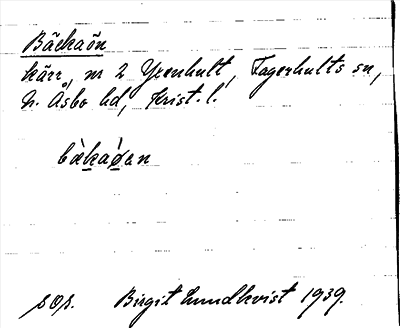 Bäckaön
kärr, nr 2 Yxenhult, Fagerhults sn,
N. Åsbo hd, Krist. l.
bækaøan
søs. Birgit Lundkvist 1939.